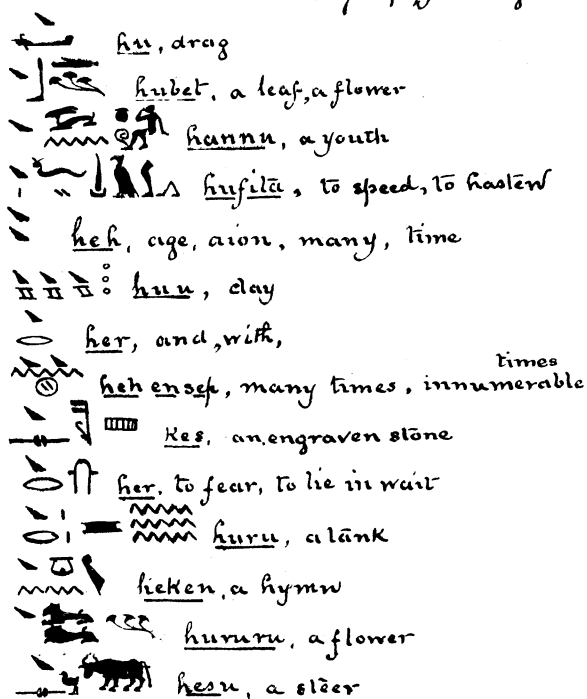 hu, drag
hubet, a leaf, a flower
hannu, a youth
hufitā, to speed, to hasten
heh, age, aion, many, time
huu, clay
her, and, with,
times
heh en sep, many times, innumerable
Kes, an engraven stone
her, to fear, to lie in wait
huru, a tank
heken, a hymn
hururu, a flower
hesu, a steer